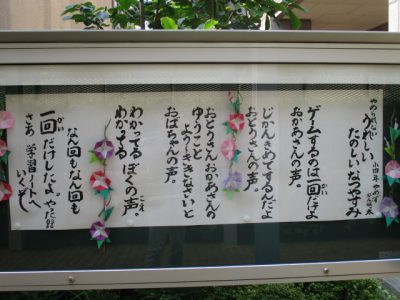 うれしい
たのしいなつやすみ
小四年
ゲームするのは一回だけよ
おかあさんの声。
じかんきめてするんだよ
おとうさんの声。
おとうさんおかあさんの
ゆうこと
よーくききなさいと
おばちゃんの声。
わかってるぼくの声。
わかってる
なん回もなん回も
一回だけしたよ。
さあ学習ノートへ
いくぞ